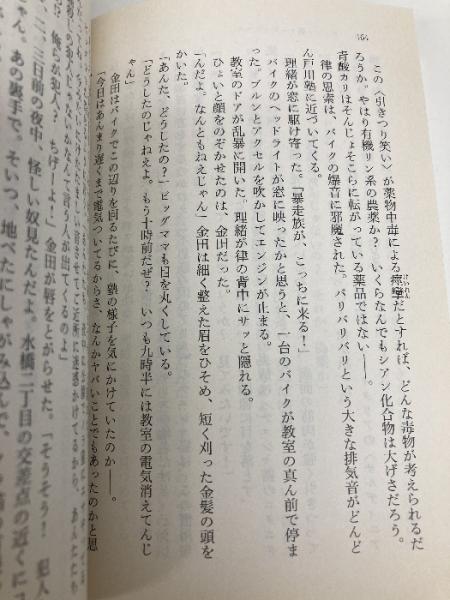 164
この〈引きつり笑い〉が薬物中毒による痙攣だとすれば、どんな毒物が考えられるだ
ろうか。やはり有機リン系の農薬か？　いくらなんでもシアン化合物は大げさだろう。
青酸カリはそんじょそこらに転がっている薬品ではない――。
律の思索は、バイクの爆音に邪魔された。バリバリバリという大きな排気音がどんど
ん戸川塾に近づいてくる。
理緒が窓に駆け寄った。「暴走族が、こっちに来る！」
バイクのヘッドライトが窓に映ったかと思うと、一台のバイクが教室の真ん前で停ま
った。ブルンとアクセルを吹かしてエンジンが止まる。
教室のドアが乱暴に開いた。理緒が律の背中にサッと隠れる。
ひょいと顔をのぞかせたのは、金田だった。
「んだよ。なんともねえじゃん」金田は細く整えた眉をひそめ、短く刈った金髪の頭を
かいた。
「あんた、どうしたの？」ビッグママも目を丸くしている。
「どうしたのじゃねえよ。もう十時前だぜ？　いつも九時半には教室の電気消えてんじ
ゃん」
金田はバイクでこの辺りを回るたびに、塾の様子を気にかけていたのか――。
「今日はあんまり遅くまで電気ついてるからさ、なんかヤバいことでもあったのかと思
の犯人じゃないかなんて言う人が出てくるのよ」
「あ？　俺らが犯人？　ちげーよ！」金田が唇をとがらせた。「そうそう！　犯人
二、三日前の夜中、怪しい奴見たんだよ。水橋二丁目の交差点の近くにコ
ゃん。あの裏手で。そいつ、地べたにしゃがみ込んで、